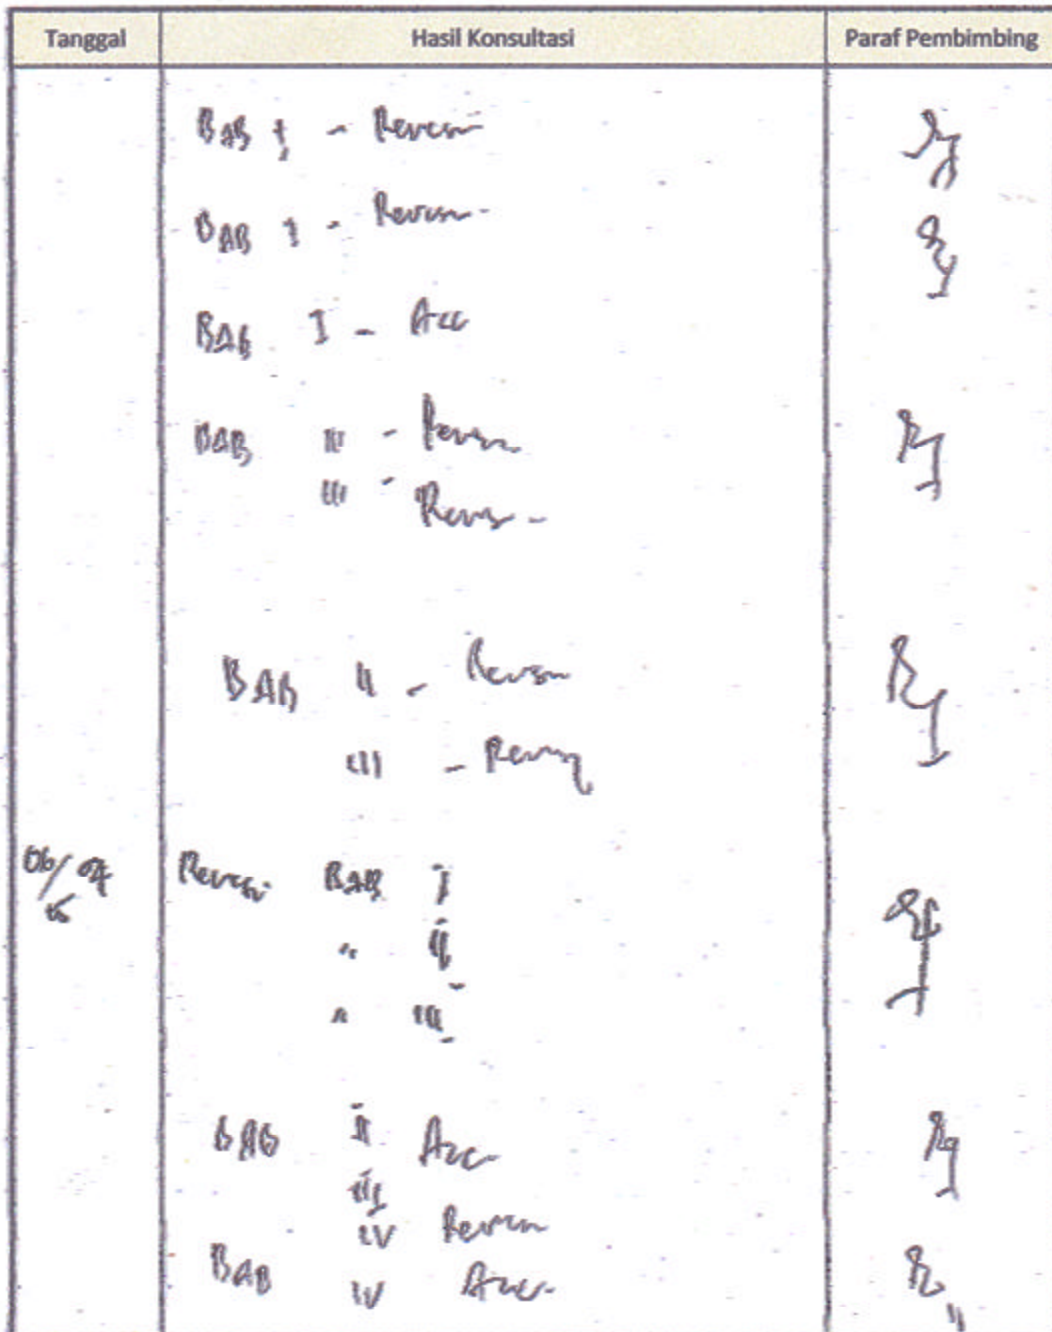 Tanggal Hasil Konsultasi Paraf Pembimbing
BAB I - Revisi
BAB I - Revisi
BAB I - Acc
BAB III - Revisi
III - Revisi
BAB II - Revisi
III - Revisi
06/04 Revisi BAB I
15 " II
" III
BAB II Acc
III
IV Revisi
BAB IV Acc